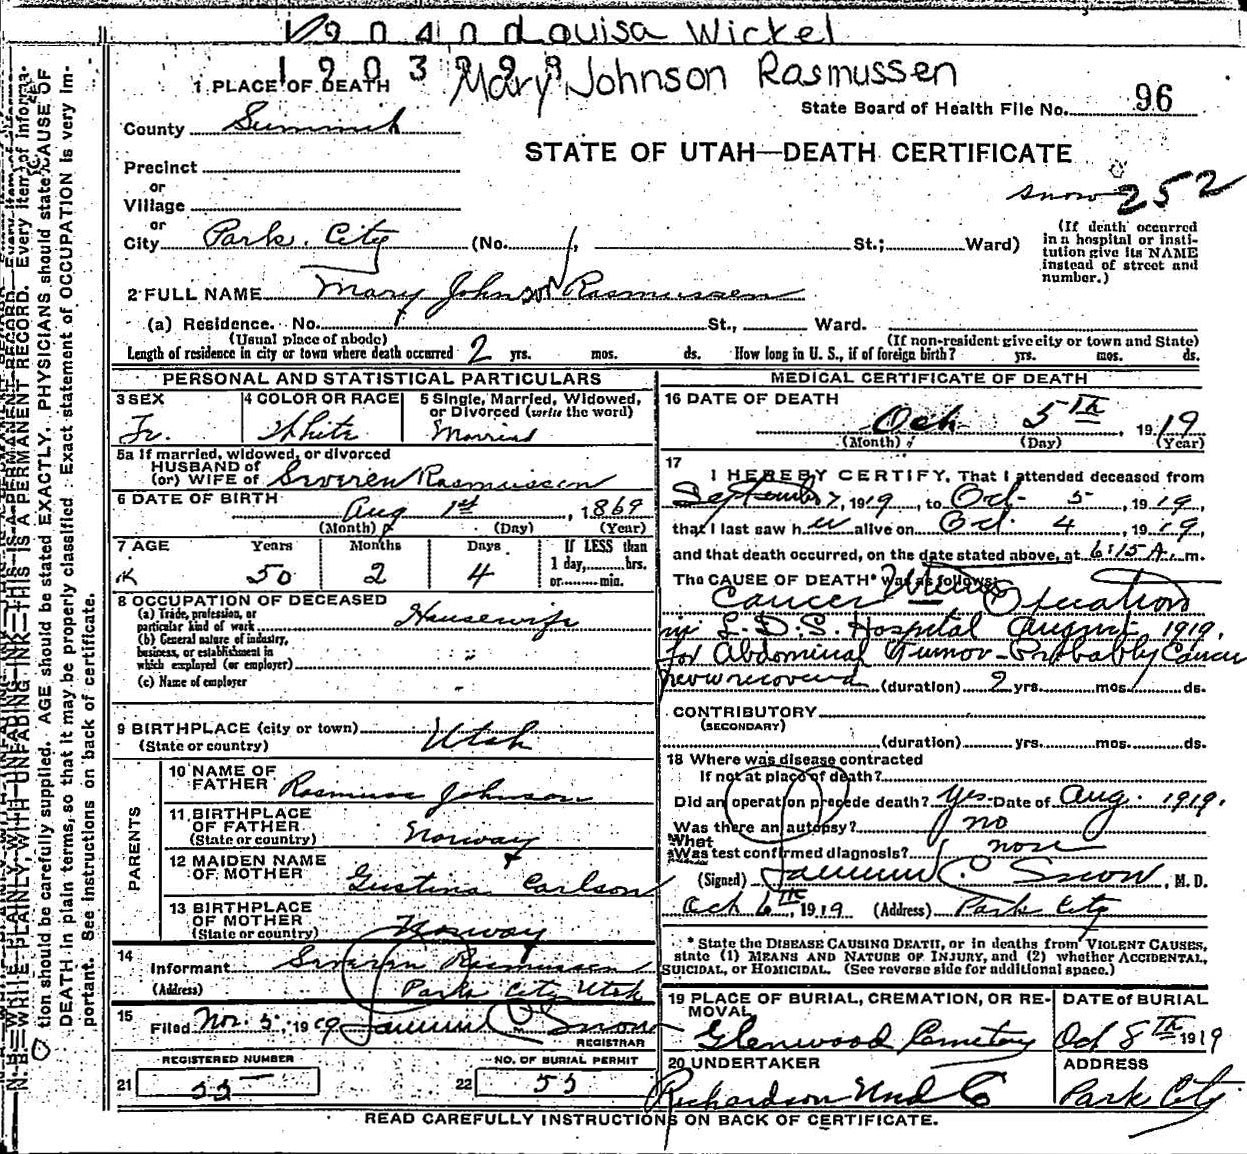 Louisa Wickel
1203229
Mary Johnson Rasmussen
1 PLACE OF DEATH
State Board of Health File No. 96
County Summit
STATE OF UTAH—DEATH CERTIFICATE
Precinct
Snow 252
or
Village
or
City Park City (No. St.; Ward)
(If death occurred in a hospital or institution give its NAME instead of street and number.)
2 FULL NAME Mary Johnson Rasmussen
(a) Residence. No. St., Ward.
(Usual place of abode) (If non-resident give city or town and State)
Length of residence in city or town where death occurred 2 yrs. mos. ds. How long in U. S., if of foreign birth? yrs. mos. ds.
PERSONAL AND STATISTICAL PARTICULARS
3 SEX 4 COLOR OR RACE 5 Single, Married, Widowed, or Divorced (write the word)
Fe. White Married
5a If married, widowed, or divorced
HUSBAND of
(or) WIFE of Rasmussen
6 DATE OF BIRTH
Aug 1st, 1869
(Month) (Day) (Year)
7 AGE Years Months Days If LESS than 1 day, hrs. or min.
50 2 4
8 OCCUPATION OF DECEASED
(a) Trade, profession, or particular kind of work Housewife
(b) General nature of industry, business, or establishment in which employed (or employer) "
(c) Name of employer "
9 BIRTHPLACE (city or town)
(State or country) Utah
PARENTS
10 NAME OF FATHER Rasmus Johnson
11 BIRTHPLACE OF FATHER
(State or country) Norway
12 MAIDEN NAME OF MOTHER Gustina Carlson
13 BIRTHPLACE OF MOTHER
(State or country) Norway
14
Informant Rasmussen
(Address) Park City Utah
15
Filed Nov. 5, 1919 Snow
REGISTRAR
REGISTERED NUMBER NO. OF BURIAL PERMIT
21 55 22 55
MEDICAL CERTIFICATE OF DEATH
16 DATE OF DEATH
Oct 5th 1919
(Month) (Day) (Year)
17
I HEREBY CERTIFY, That I attended deceased from
September 7, 1919, to Oct 5, 1919,
that I last saw her alive on Oct. 4, 1919,
and that death occurred, on the date stated above, at 6:15 A. m.
The CAUSE OF DEATH* was as follows:
Cancer Uterus Operation
in L.D.S. Hospital August 1919.
for Abdominal Tumor - Probably Cancer
never recovered (duration) 2 yrs. mos. ds.
CONTRIBUTORY
(SECONDARY)
(duration) yrs. mos. ds.
18 Where was disease contracted
If not at place of death?
Did an operation precede death? Yes - Date of Aug. 1919.
Was there an autopsy? no
What test confirmed diagnosis? none
(Signed) C. Snow, M. D.
Oct 6th, 1919 (Address) Park City
* State the DISEASE CAUSING DEATH, or in deaths from VIOLENT CAUSES,
state (1) MEANS AND NATURE OF INJURY, and (2) whether ACCIDENTAL,
SUICIDAL, or HOMICIDAL. (See reverse side for additional space.)
19 PLACE OF BURIAL, CREMATION, OR REMOVAL DATE of BURIAL
Glenwood Cemetery Oct 8th 1919
20 UNDERTAKER ADDRESS
Richardson Und Co Park City
READ CAREFULLY INSTRUCTIONS ON BACK OF CERTIFICATE.
N. B.—WRITE PLAINLY, WITH UNFADING INK—THIS IS A PERMANENT RECORD. Every item of information should be carefully supplied. AGE should be stated EXACTLY. PHYSICIANS should state CAUSE OF
DEATH in plain terms, so that it may be properly classified. Exact statement of OCCUPATION is very important. See instructions on back of certificate.